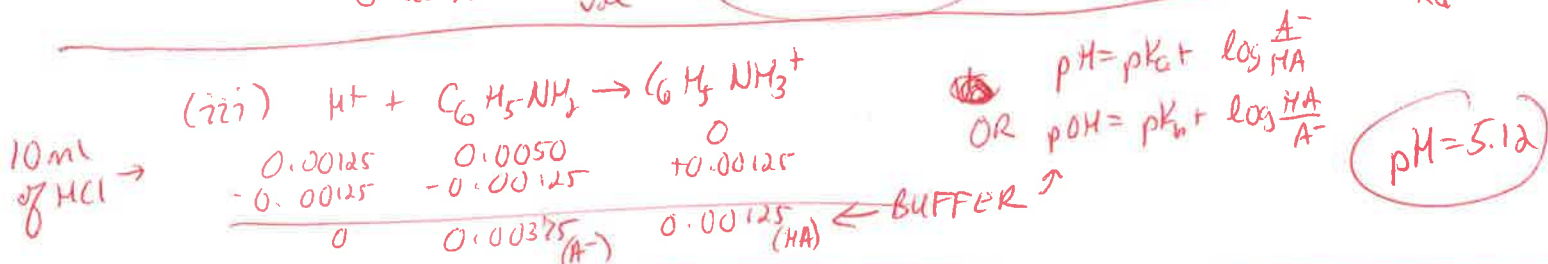 (iii) H⁺ + C₆H₅NH₂ → C₆H₅NH₃⁺
10ml of HCl →
0.00125 0.0050 0
-0.00125 -0.00125 +0.00125
0 0.00375 (A⁻) 0.00125 (HA) ← BUFFER ↑
pH = pKa + log A⁻/HA
OR pOH = pKb + log HA/A⁻
pH = 5.12